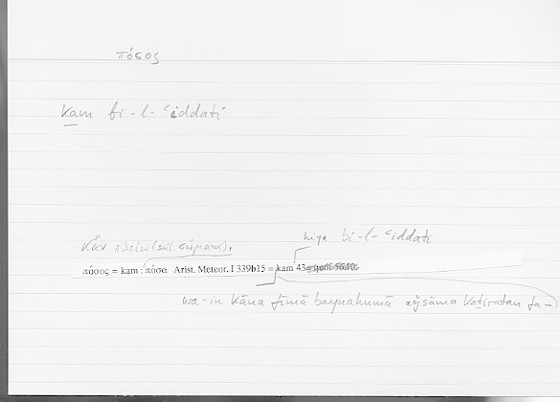 πόσος
kam bi-l-ʿiddati
κἂν πλείω (sc. σώματα),
hiya bi-l-ʿiddati
πόσος = kam : πόσα Arist. Meteor. I 339b15 = kam 43
wa-in kāna fīmā baynahumā aǧsāma kaṯīratan fa-